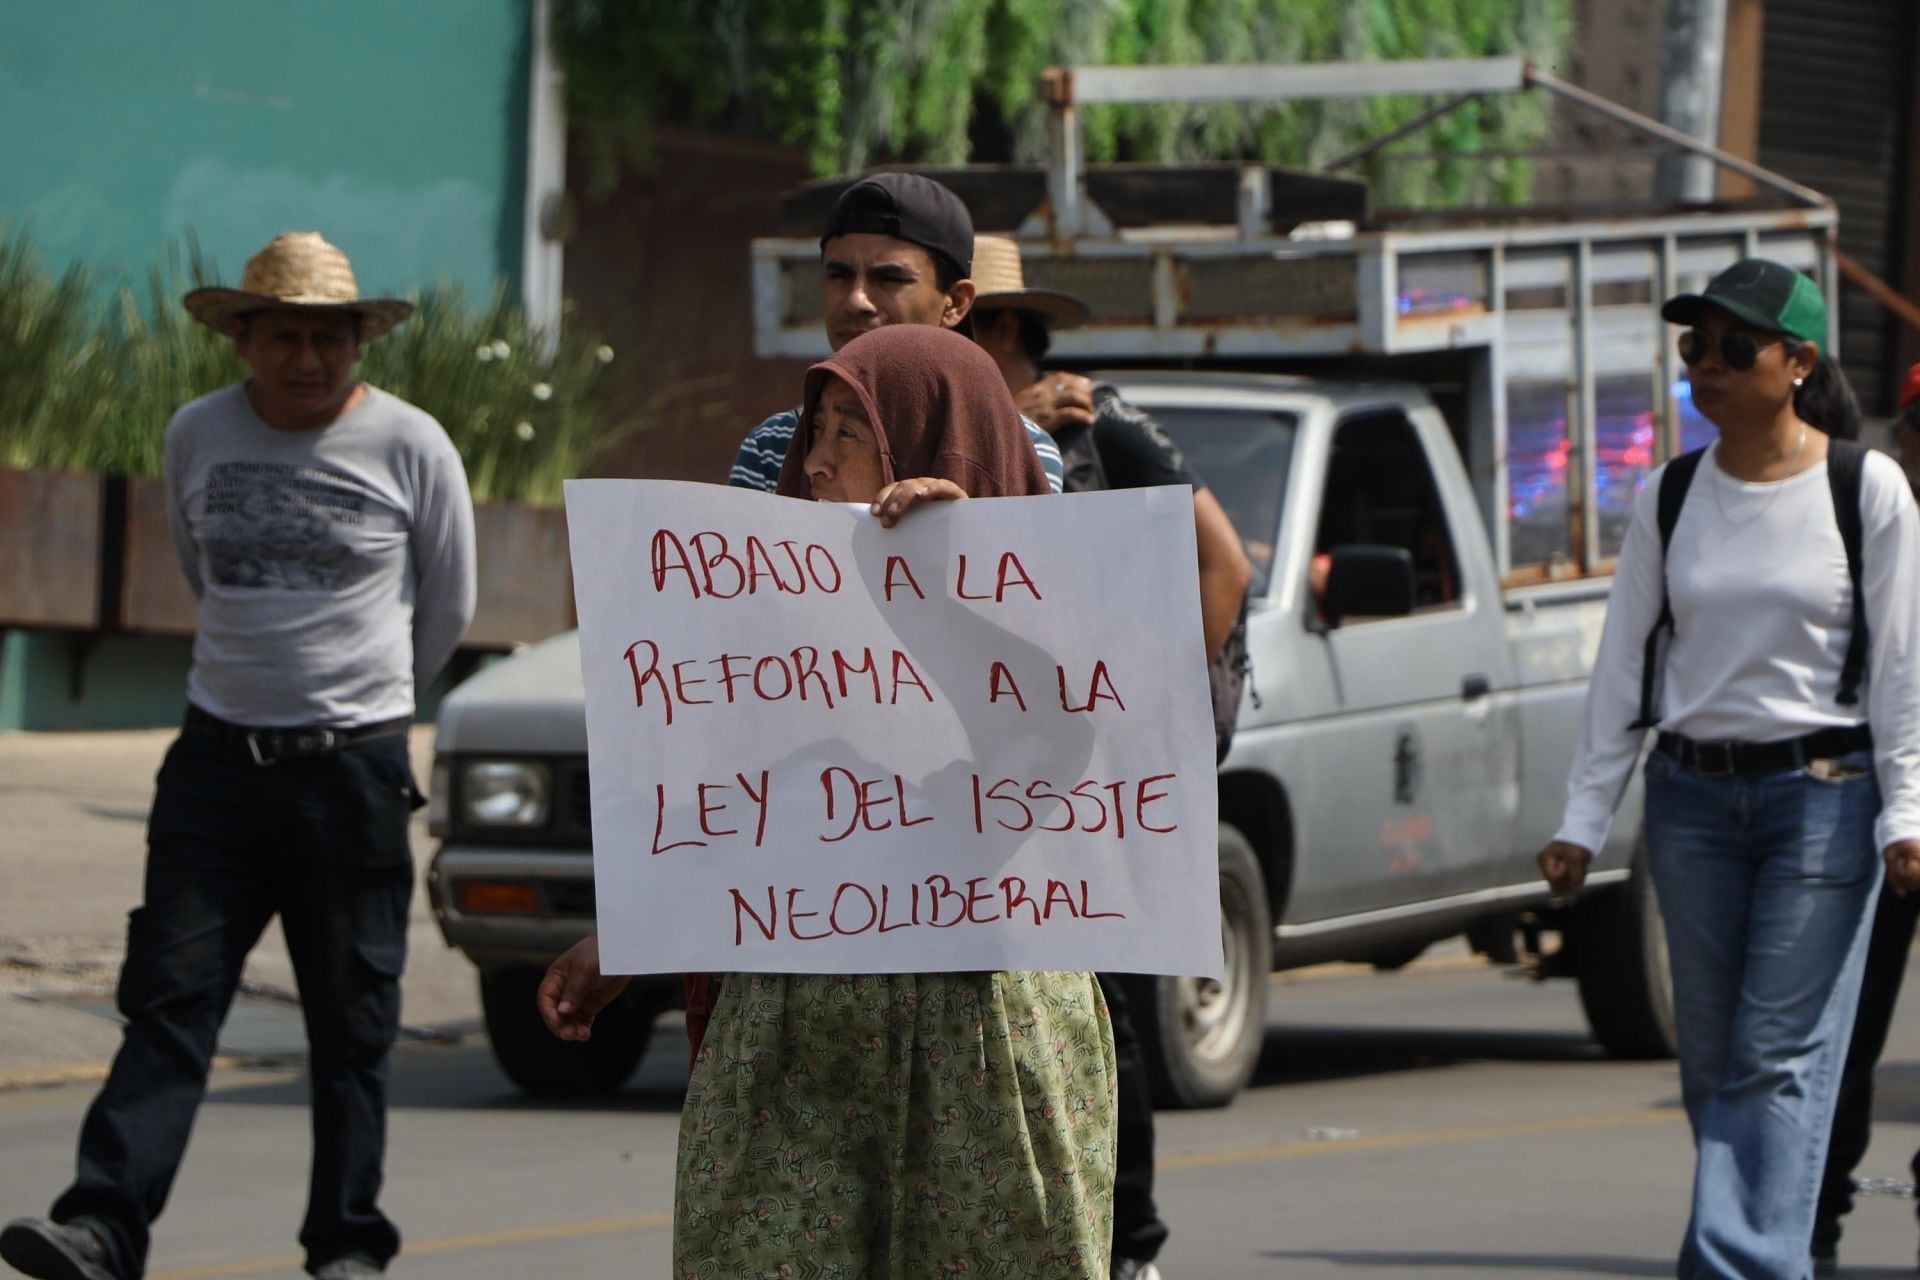 ABAJO A LA
REFORMA A LA
LEY DEL ISSSTE
NEOLIBERAL